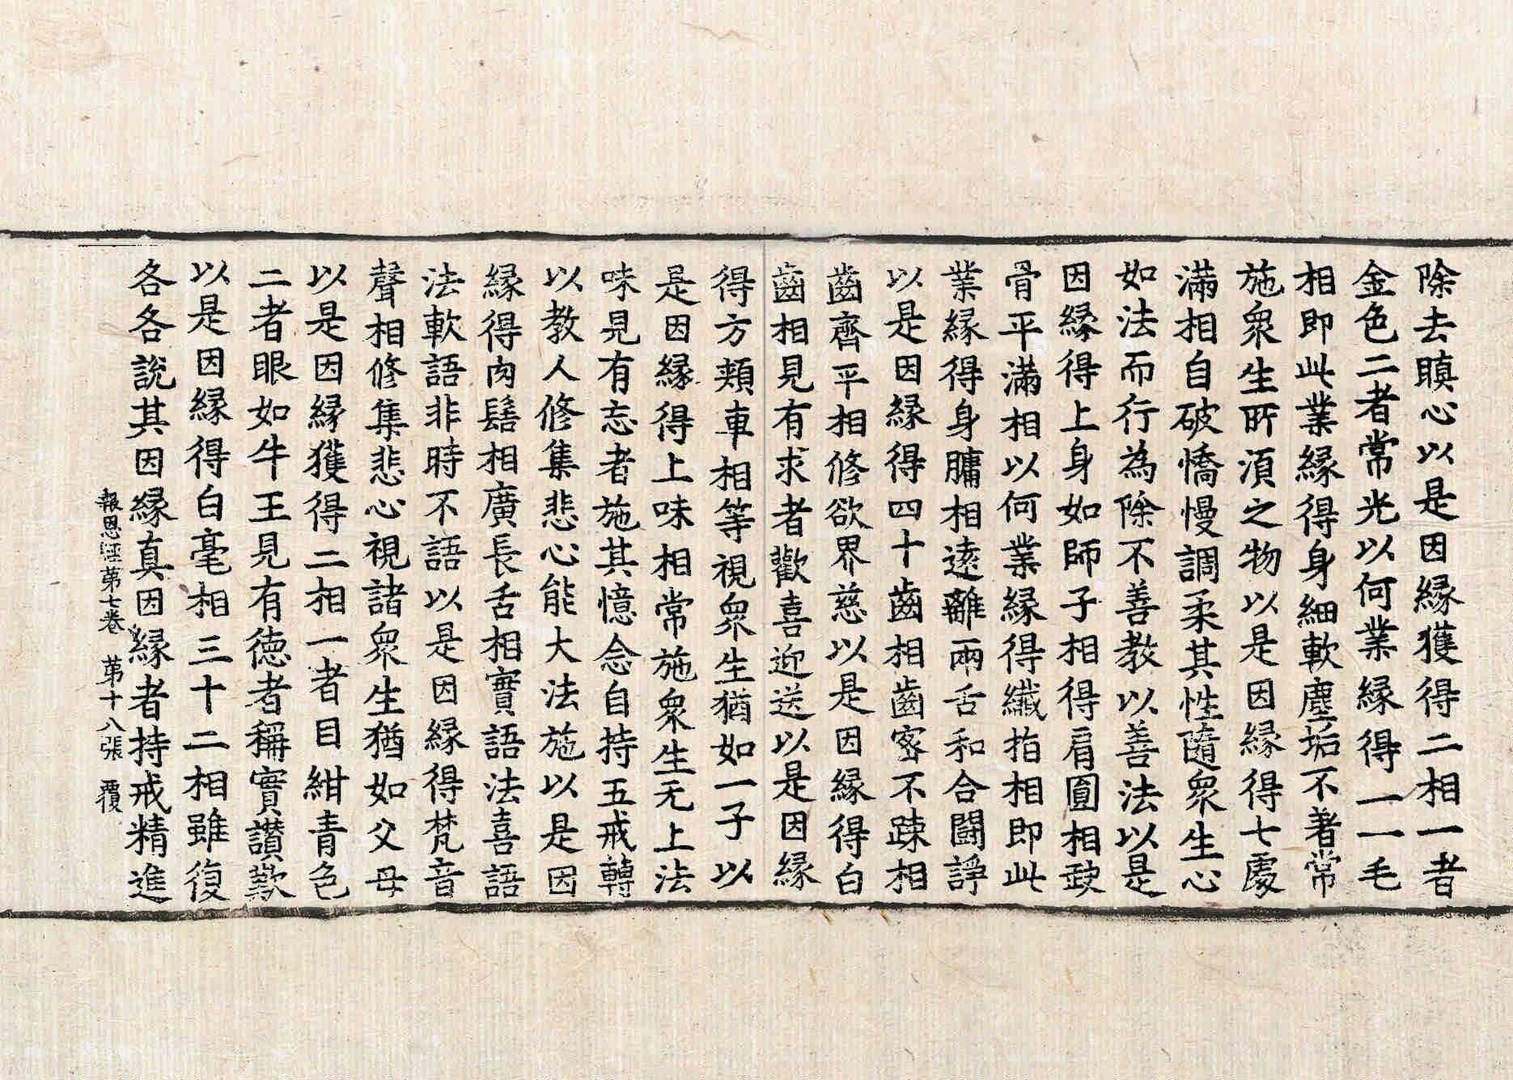 除去瞋心以是因縁獲得二相一者
金色二者常光以何業縁得一一毛
相即此業縁得身細軟塵垢不著常
施衆生所湏之物以是因縁得七處
滿相自破憍慢調柔其性隨衆生心
如法而行為除不善教以善法以是
因縁得上身如師子相得肩圓相𡙇
骨平滿相以何業縁得纖指相即此
業縁得身𦟛相遠離兩舌和合鬪諍
以是因縁得四十齒相齒宻不踈相
齒齊平相修欲界慈以是因縁得白
齒相見有求者歡喜迎送以是因縁
得方頰車相等視衆生猶如一子以
是因縁得上味相常施衆生无上法
味見有忘者施其憶念自持五戒轉
以教人修集悲心能大法施以是因
縁得肉髻相廣長舌相實語法喜語
法軟語非時不語以是因縁得梵音
聲相修集悲心視諸衆生猶如父母
以是因縁獲得二相一者目紺青色
二者眼如牛王見有徳者稱實讃歎
以是因縁得白毫相三十二相雖復
各各說其因縁真因縁者持戒精進
報恩經第七卷 第十八張 覆